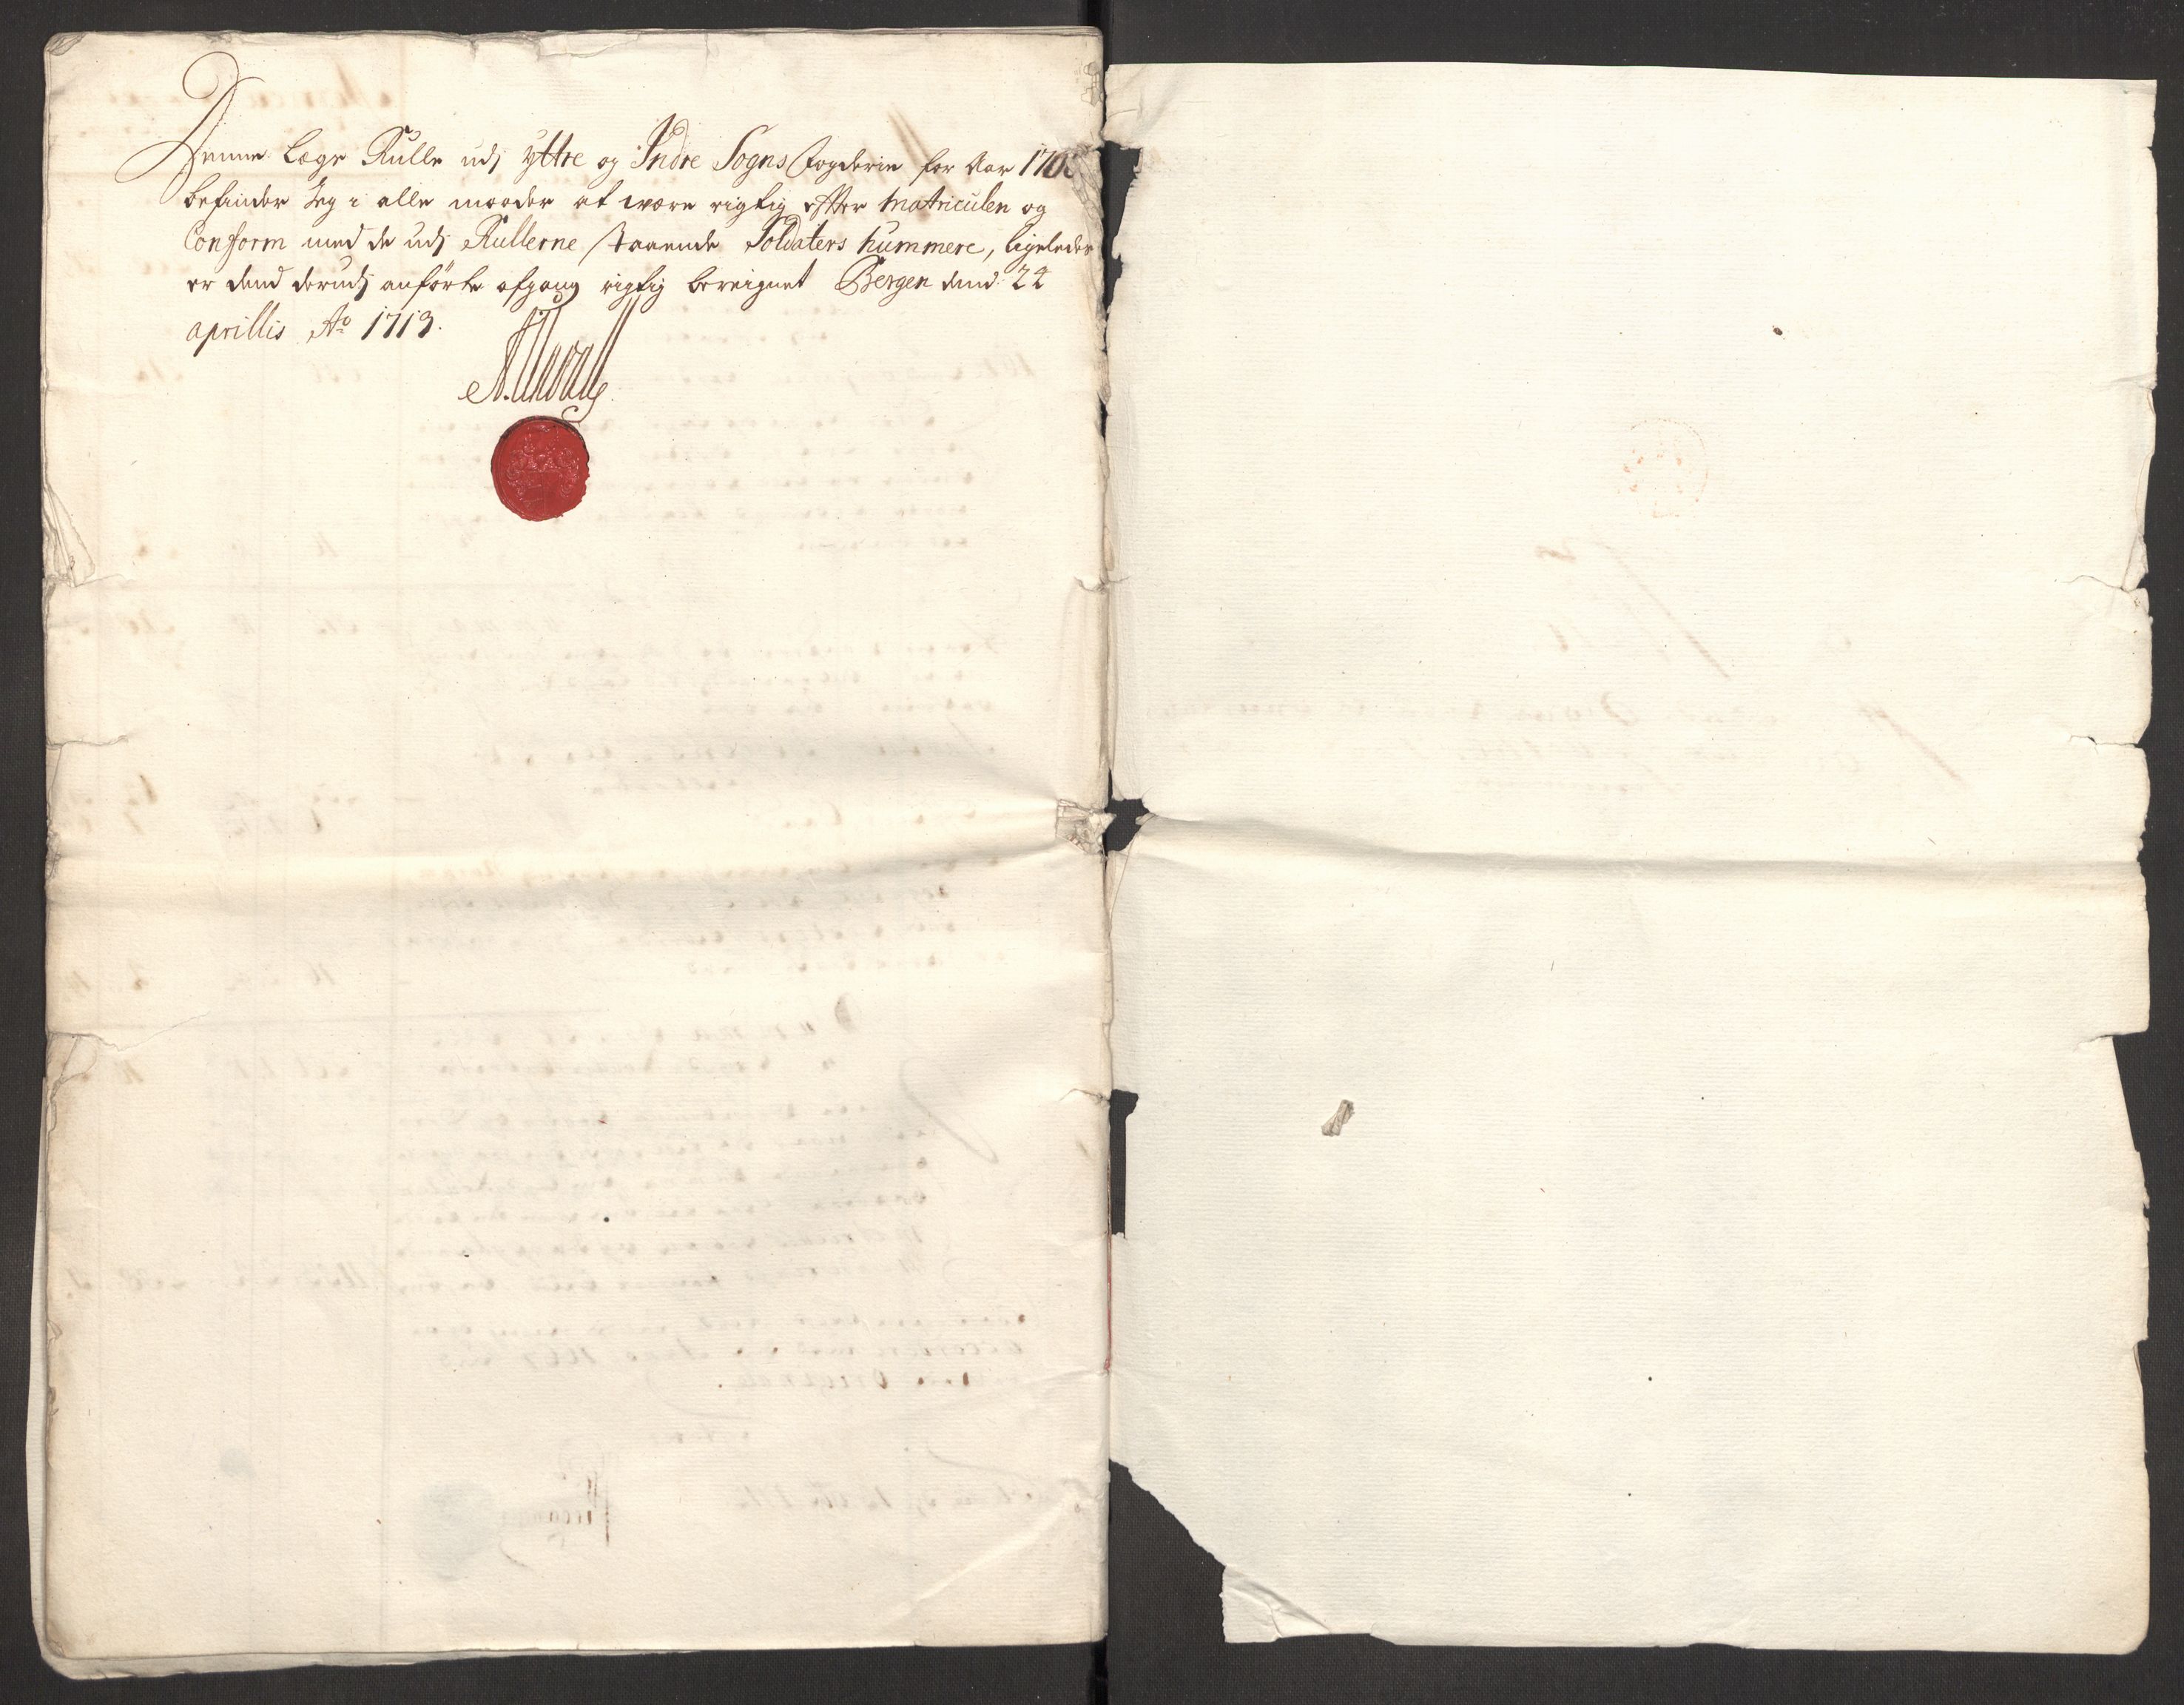 Denne Læge Rulle udj ÿttre og Indre Sogns fogderie for Aar
befinder Jeg i alle maader at were rigtig efter Matriculen og
Conform med de udj Rullerne staaende Soldaters Nummere, ligeledes
er dend derudj anførte afgang rigtig beregnet Bergen dend 24
aprillis Ao 1713.